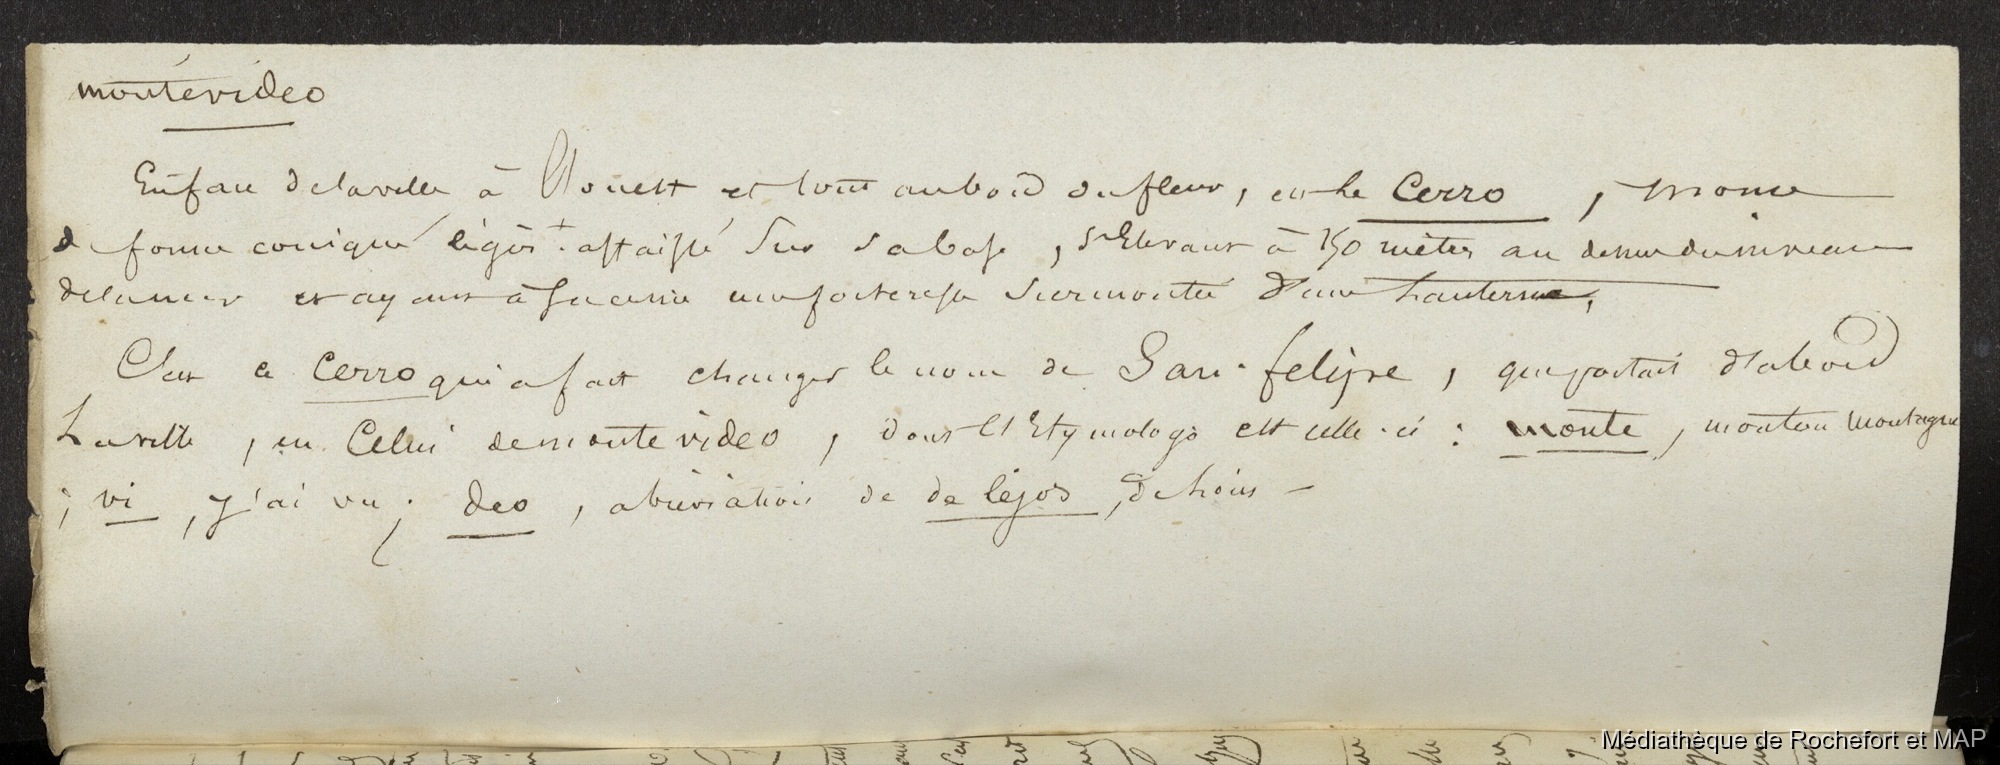 montévideo
En face de la ville à l'ouest et tout au bord du fleuve, est le Cerro, morne
de forme conique légèrt. affaissé sur sa base, s'élevant à 150 mètres au dessus du niveau
de la mer et ayant à sa cime une forteresse surmontée d'une lanterne.
C'est ce Cerro qui a fait changer le nom de San-felipe, que portait d'abord
la ville, en celui de monte video, dont l'Etymologie est celle-ci : monte, montagne
; vi, j'ai vu ; deo, abréviation de de léjos, de loin –
Médiathèque de Rochefort et MAP